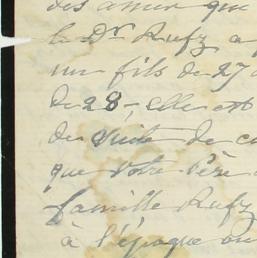 des amies que
le Dr Rufz a
un fils de 27 a
de 28, elle est
de suite de ce
que votre Père
famille Rufz
à l'époque ou